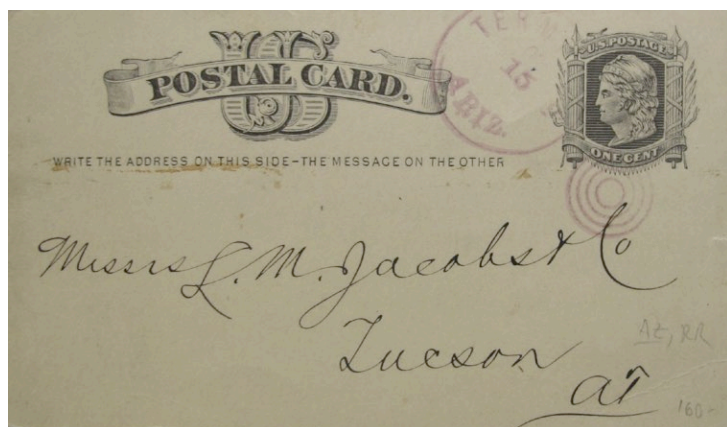 US
POSTAL CARD.
TER
15
ARIZ.
U.S. POSTAGE
ONE CENT
WRITE THE ADDRESS ON THIS SIDE-THE MESSAGE ON THE OTHER
Messrs L. M. Jacobs & Co
Tucson
AT
AZ, RR
160-